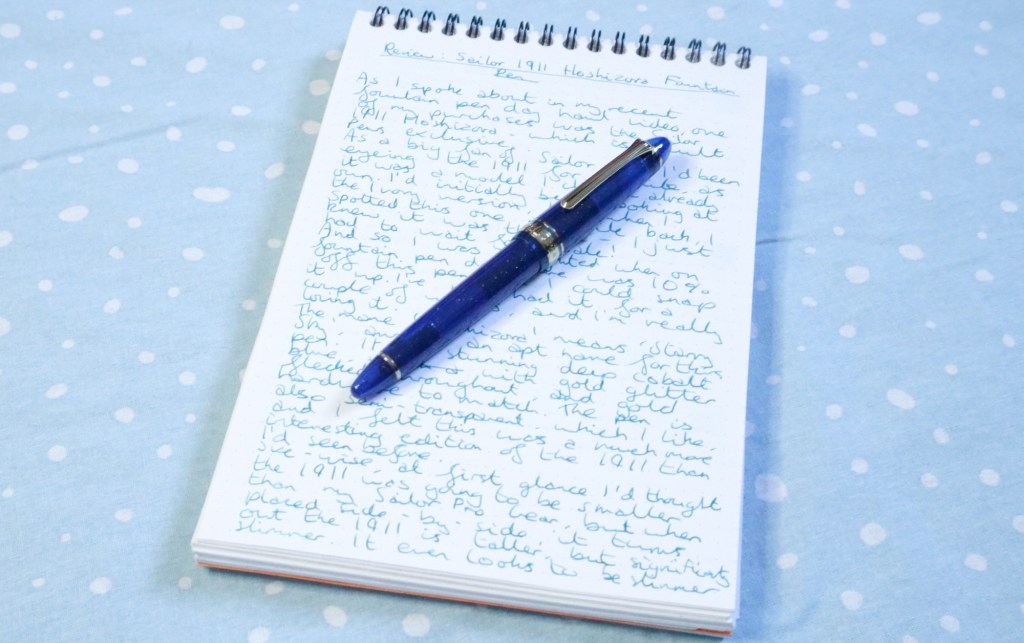 Review: Sailor 1911 Hoshizora Fountain
Pen
As I spoke about in my recent
fountain pen day haul video, one
of my purchases was the Sailor
1911 Hoshizora - which is a Cult
Pens exclusive.
As a big fan of Sailor I'd been
eyeing the 1911 for as
it was a model I already
own. I'd initially been looking at
the ivory version, but when I
spotted this one back, I
knew it was I just
had to wait
And so I was when on
fountain pen day 10%
off this pen I could snap
it up. I've had it for a
couple of and I'm really
loving it.
The name Hoshizora means 'Starry
Sky' an apt name for this
pen. It's a stunning deep cobalt
blue with gold glitter
flecked throughout and gold
bands to match. The pen is
also semi-transparent, which I like,
and I felt this was a much more
interesting edition of the 1911 than
I'd seen before.
Size-wise, at first glance I'd thought
the 1911 was going to be smaller
than my Sailor Pro Gear, but when
placed side-by-side, it turns
out the 1911 is taller, but significantly
slimmer. It even looks to be slimmer